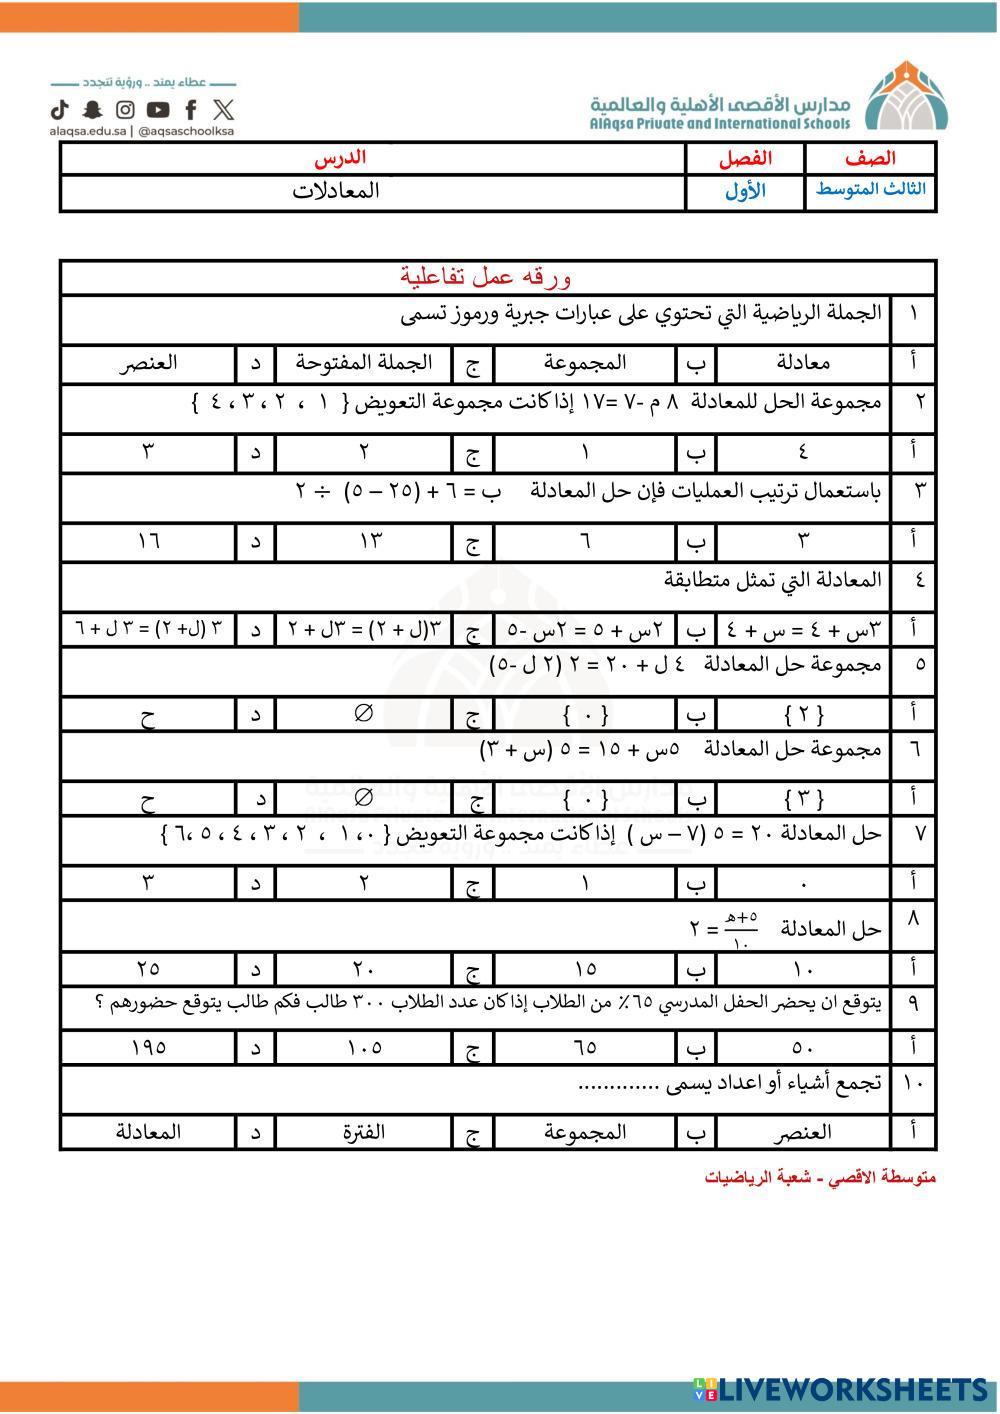 عطاء يمتد .. ورؤية تتجدد
alaqsa.edu.sa | @aqsaschoolksa
مدارس الأقصى الأهلية والعالمية
AlAqsa Private and International Schools
الصف الفصل الدرس
الثالث المتوسط الأول المعادلات
ورقه عمل تفاعلية
١ الجملة الرياضية التي تحتوي على عبارات جبرية ورموز تسمى
أ معادلة ب المجموعة ج الجملة المفتوحة د العنصر
٢ مجموعة الحل للمعادلة ٨ م -٧ =١٧ إذا كانت مجموعة التعويض { ١ ، ٢ ، ٣ ، ٤ }
أ ٤ ب ١ ج ٢ د ٣
٣ باستعمال ترتيب العمليات فإن حل المعادلة ب = ٦ + (٢٥ – ٥) ÷ ٢
أ ٣ ب ٦ ج ١٣ د ١٦
٤ المعادلة التي تمثل متطابقة
أ ٣س + ٤ = س + ٤ ب ٢س + ٥ = ٢س -٥ ج ٣(ل + ٢) = ٣ل + ٢ د ٣ (ل+ ٢) = ٣ ل + ٦
٥ مجموعة حل المعادلة ٤ ل + ٢٠ = ٢ (٢ ل -٥)
أ { ٢ } ب { ٠ } ج ∅ د ح
٦ مجموعة حل المعادلة ٥س + ١٥ = ٥ (س + ٣)
أ { ٣ } ب { ٠ } ج ∅ د ح
٧ حل المعادلة ٢٠ = ٥ (٧ – س ) إذا كانت مجموعة التعويض { ٠، ١ ، ٢ ، ٣ ، ٤ ، ٥ ،٦ }
أ ٠ ب ١ ج ٢ د ٣
٨ حل المعادلة ٥+هـ/١٠ = ٢
أ ١٠ ب ١٥ ج ٢٠ د ٢٥
٩ يتوقع ان يحضر الحفل المدرسي ٦٥٪ من الطلاب إذا كان عدد الطلاب ٣٠٠ طالب فكم طالب يتوقع حضورهم ؟
أ ٥٠ ب ٦٥ ج ١٠٥ د ١٩٥
١٠ تجمع أشياء أو اعداد يسمى .............
أ العنصر ب المجموعة ج الفترة د المعادلة
متوسطة الاقصي - شعبة الرياضيات
LIVEWORKSHEETS